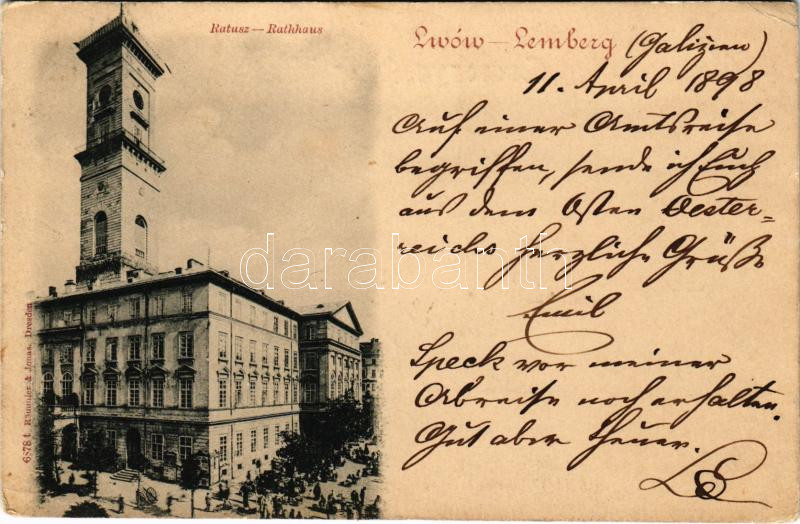 Ratusz — Rathhaus
Lwów — Lemberg
(Galizien)
11. April 1898
Auf einer Amtsreise
begriffen, sende ich Euch
aus dem Osten Oester-
reichs herzliche Grüße
Emil
Speck vor meiner
Abreise noch erhalten.
Gut aber theuer.
darabanth.com
Römmler & Jonas, Dresden